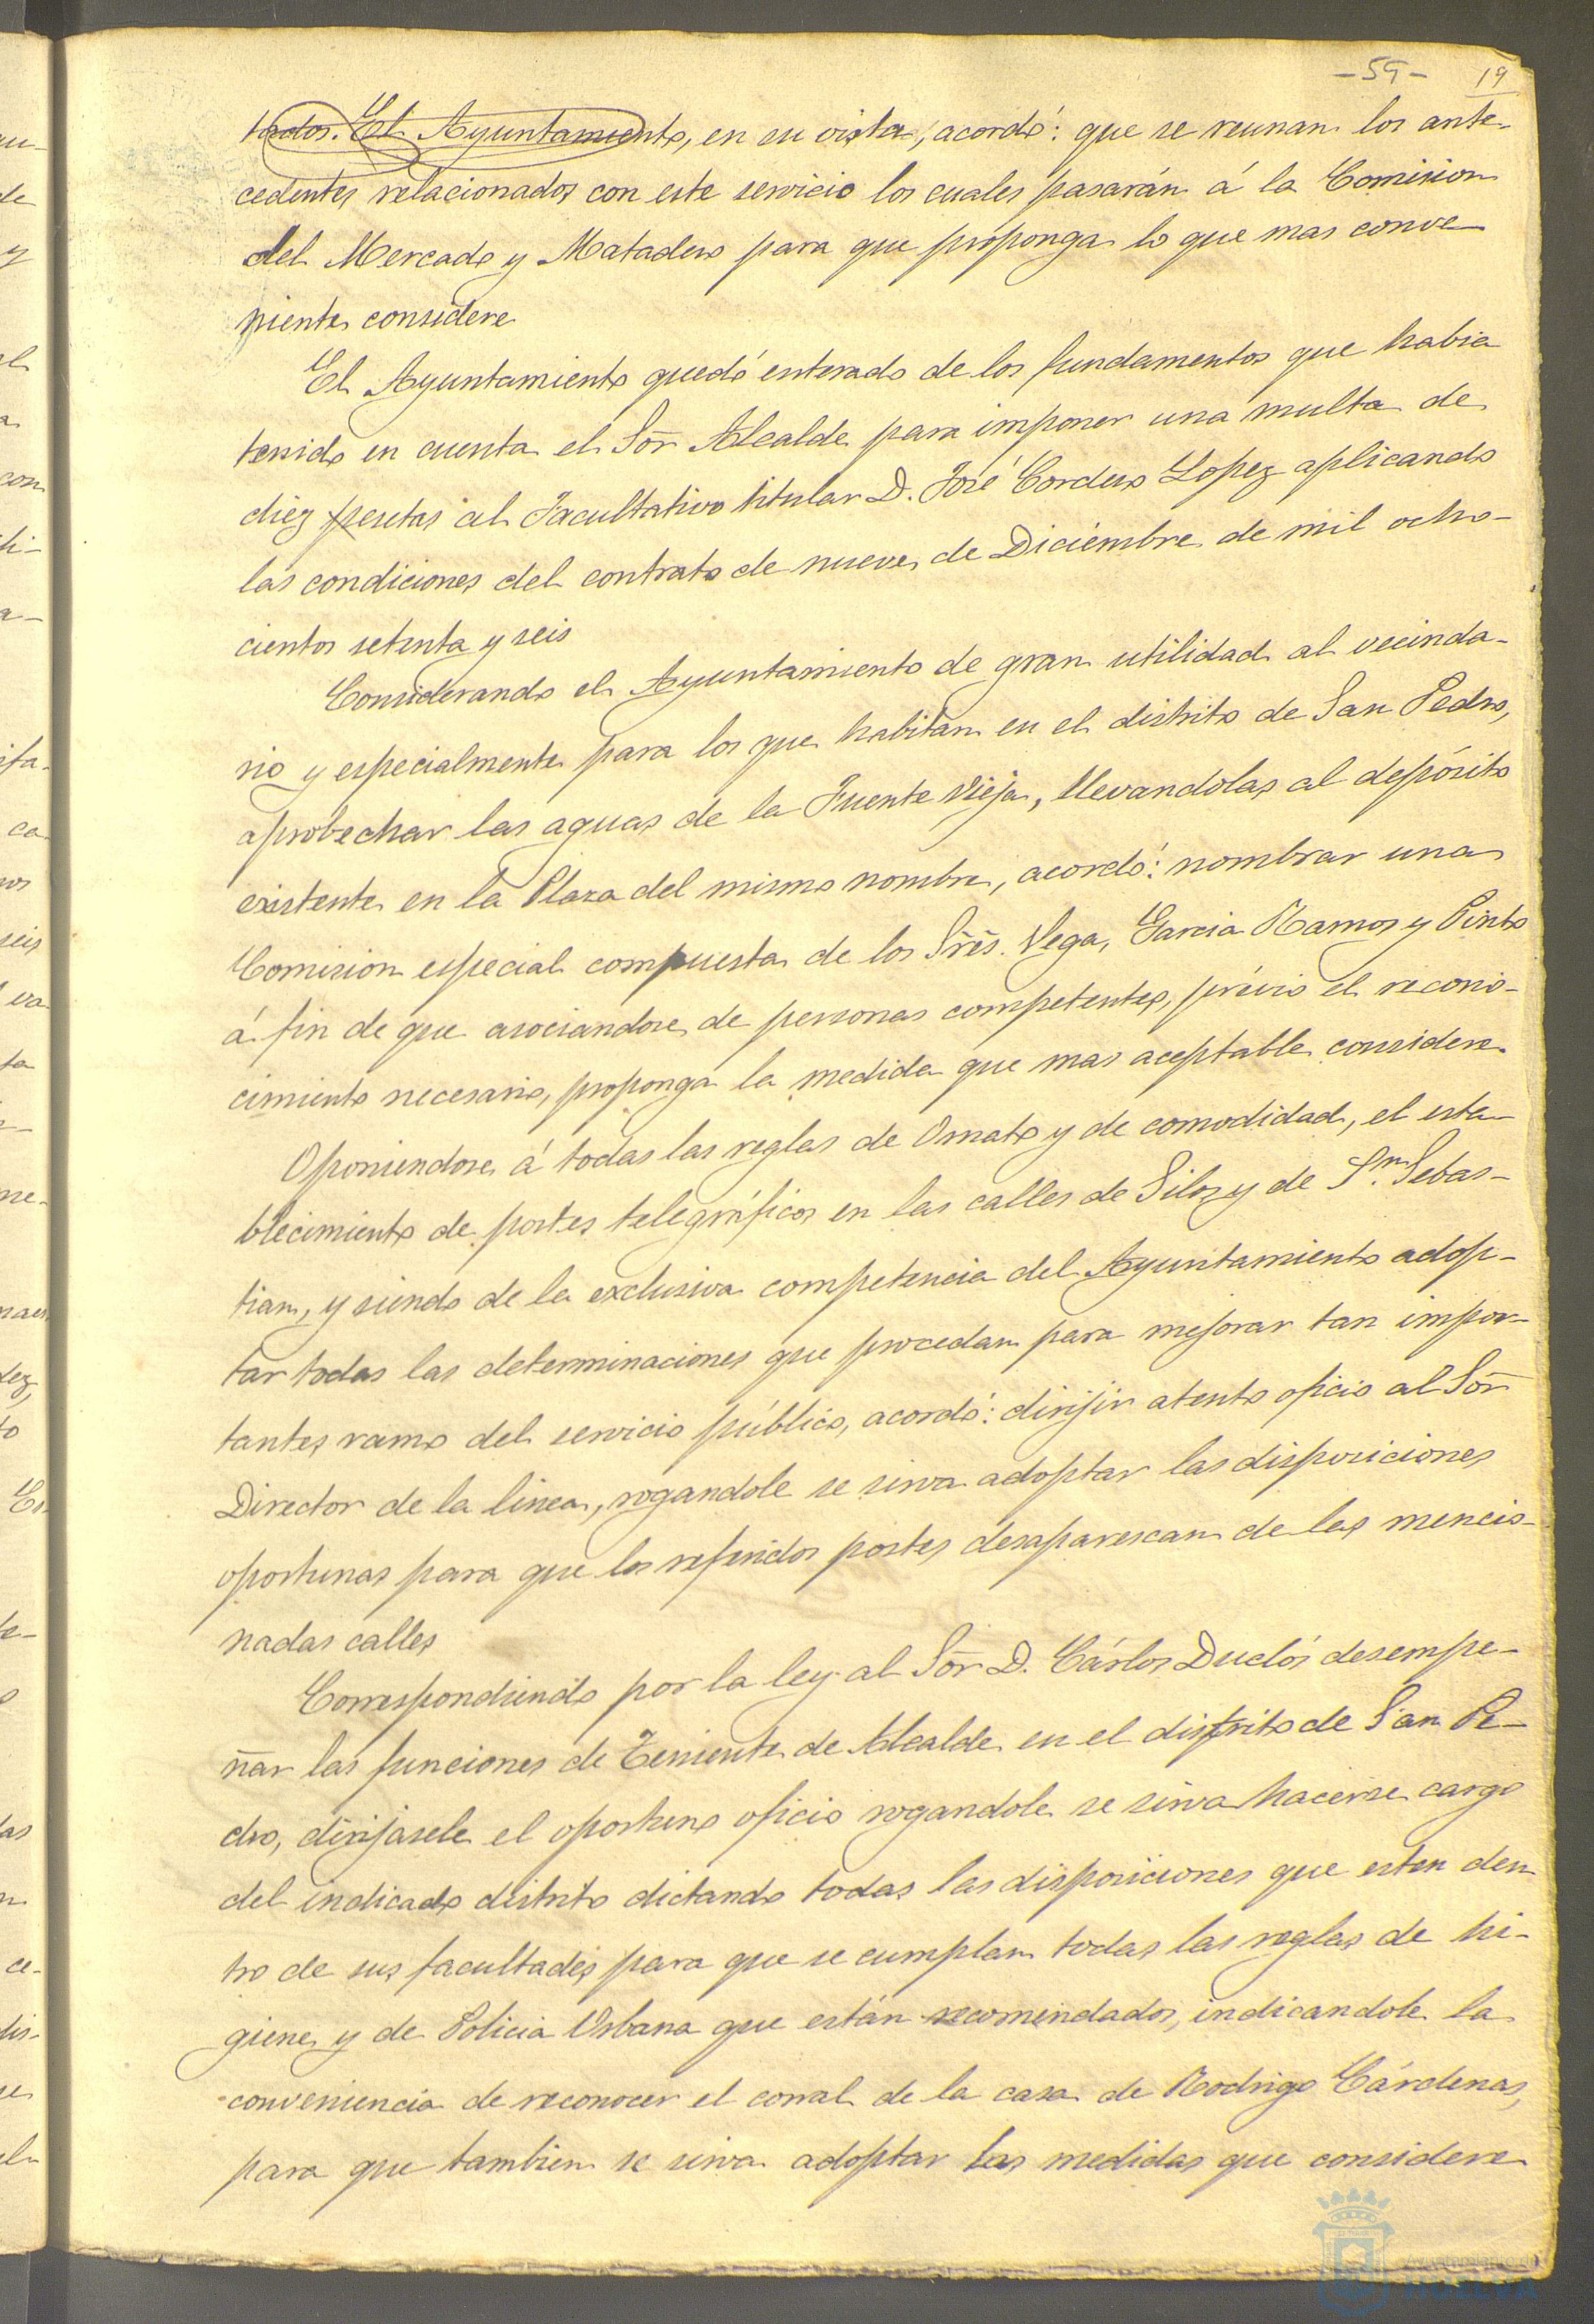 -59- 19
tados. El Ayuntamiento, en su vista, acordó: que se reunan los ante-
cedentes relacionados con este servicio los cuales pasarán á la Comision
del Mercado y Matadero para que proponga lo que mas conve-
niente considere
El Ayuntamiento quedó enterado de los fundamentos que habia
tenido en cuenta el Sor̃ Alcalde para imponer una multa de
diez pesetas al Facultativo titular D. José Cordero Lopez aplicando
las condiciones del contrato de nueve de Diciembre de mil ocho-
cientos setenta y seis
Considerando el Ayuntamiento de gran utilidad al vecinda-
rio y especialmente para los que habitan en el distrito de San Pedro,
aprobechar las aguas de la Fuente Vieja, llevandolas al depósito
existente en la Plaza del mismo nombre, acordó: nombrar una
Comision especial compuesta de los Sres̃. Vega, Garcia Ramos y Pinto
á fin de que asociandose de personas competentes, prévio el recono-
cimiento necesario, proponga la medida que mas aceptable considere.
Oponiendose á todas las reglas de Ornato y de comodidad, el esta-
blecimiento de postes telegráficos en las calles de Silos y de Sn. Sebas-
tian, y siendo de la exclusiva competencia del Ayuntamiento adop-
tar todas las determinaciones que procedan para mejorar tan impor-
tantes ramo del servicio público, acordó: dirijir atento oficio al Sor̃
Director de la linea, rogandole se sirva adoptar las disposiciones
oportunas para que los referidos postes desaparescan de las mencio-
nadas calles
Correspondiendo por la ley al Sor̃ D. Cárlos Duclós desempe-
ñar las funciones de Teniente de Alcalde en el distrito de San Pe-
dro, dirijasele el oportuno oficio rogandole se sirva hacerse cargo
del indicado distrito dictando todas las disposiciones que esten den
tro de sus facultades para que se cumplan todas las reglas de hi-
giene y de Policia Urbana que están recomendados, indicandole la
conveniencia de reconocer el corral de la casa de Rodrigo Cárdenas,
para que tambien se sirva adoptar las medidas que considere
Ayuntamiento de
HUELVA